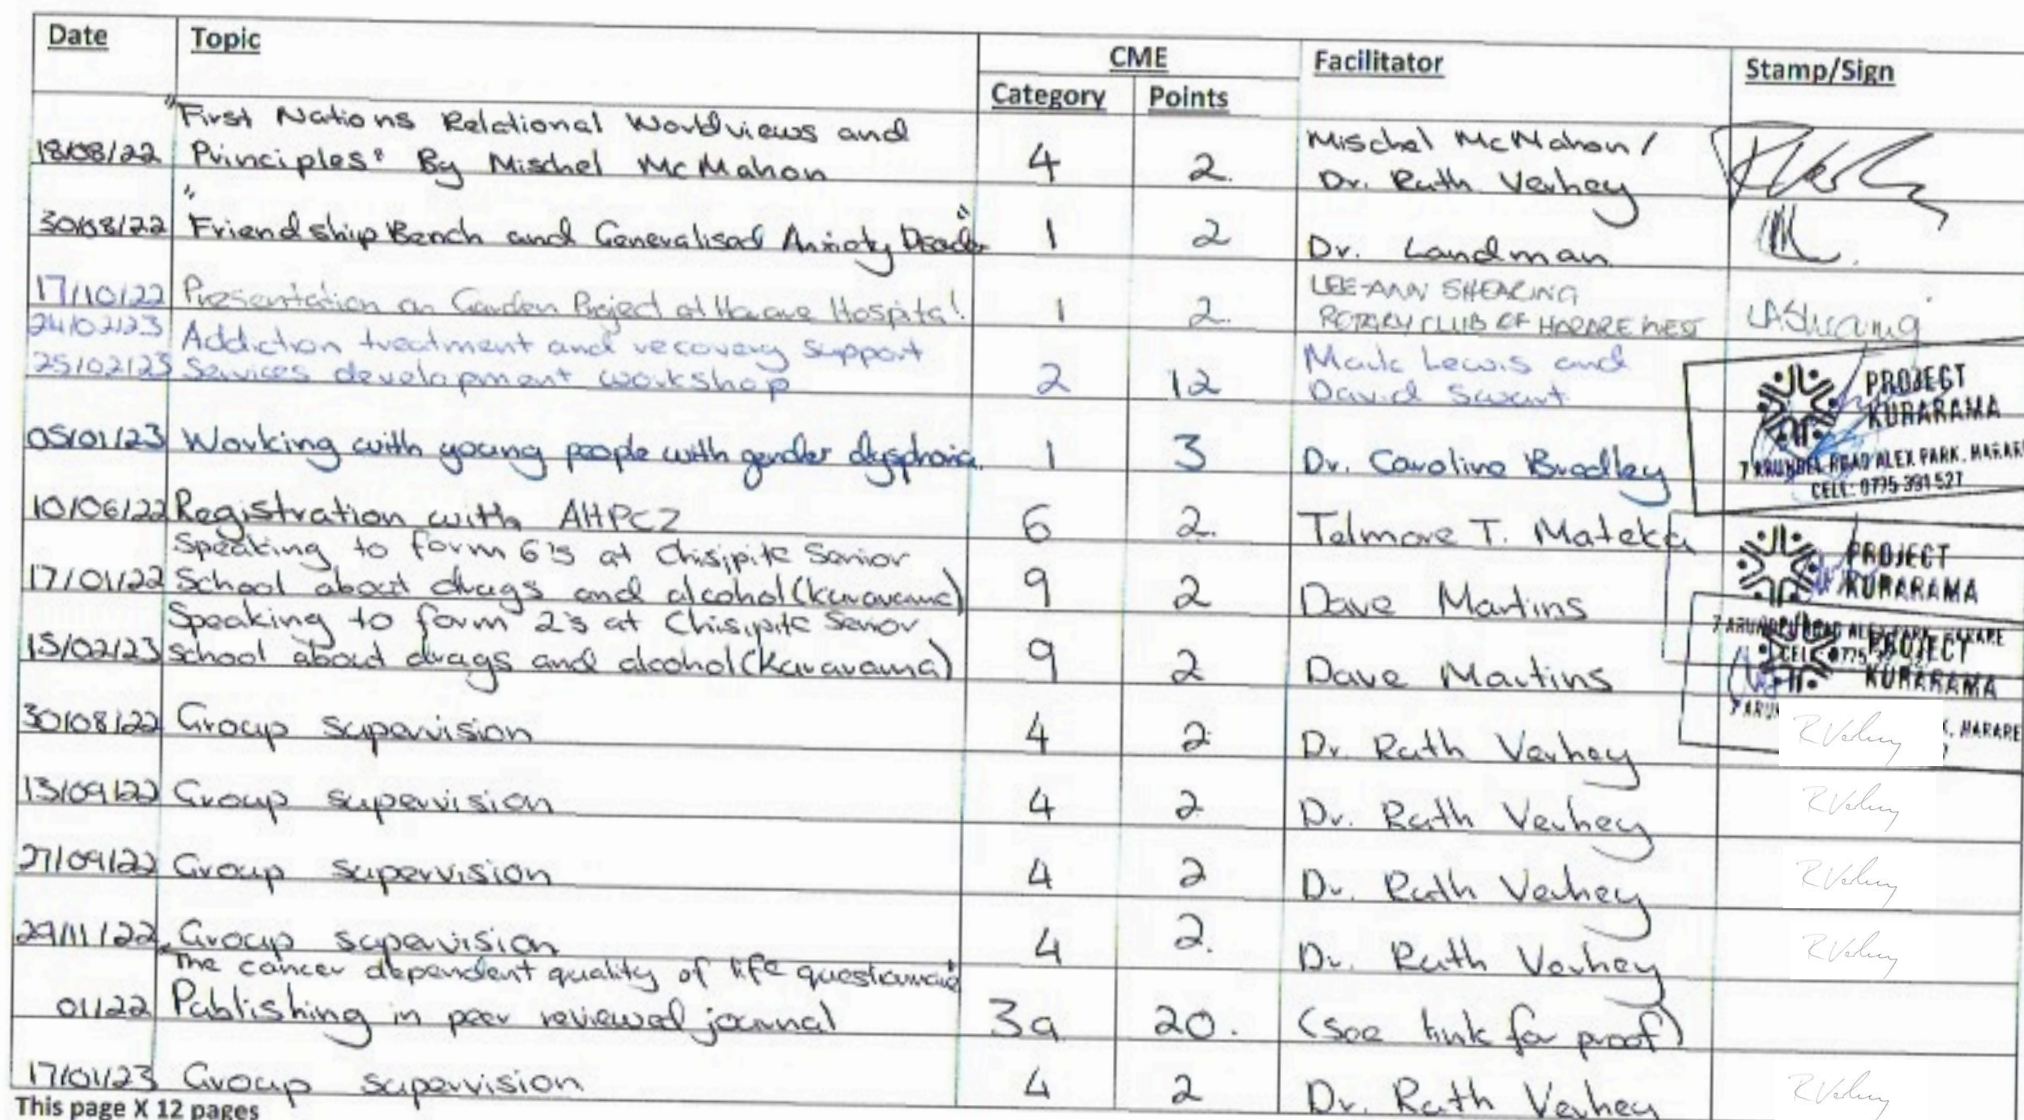 Date Topic CME Facilitator Stamp/Sign
Category Points
"First Nations Relational Worldviews and
18/08/22 Principles" By Mischel McMahon 4 2. Mischel McMahon / Dr. Ruth Verhey
30/08/22 "Friendship Bench and Generalised Anxiety Disorder" 1 2 Dr. Landman
17/10/22 Presentation on Garden Project at Harare Hospital! 1 2. LEE-ANN SHEARING ROTARY CLUB OF HARARE WEST LAShearing
24/02/23 Addiction treatment and recovery support
25/02/23 Services development workshop 2 12 Mark Lewis and David Swart
PROJECT
KURARAMA
7 ARUNDEL ROAD ALEX PARK, HARARE
CELL: 0775 391 527
05/01/23 Working with young people with gender dysphoria. 1 3 Dr. Caroline Bradley
10/06/22 Registration with AHPCZ 6 2. Telmore T. Mateka
Speaking to form 6's at Chisipite Senior
17/01/22 School about drugs and alcohol (Kurarama) 9 2 Dave Martins
PROJECT
KURARAMA
7 ARUNDEL ROAD ALEX PARK, HARARE
CELL: 0775
Speaking to form 2's at Chisipite Senior
15/02/23 School about drugs and alcohol (Kurarama) 9 2 Dave Martins
PROJECT
KURARAMA
7 ARUN K, HARARE
7
30/08/22 Group supervision 4 2 Dr. Ruth Verhey R Verhey
13/09/22 Group supervision 4 2 Dr. Ruth Verhey R Verhey
27/09/22 Group supervision 4 2 Dr. Ruth Verhey R Verhey
29/11/22 Group supervision 4 2. Dr. Ruth Verhey R Verhey
"The cancer dependent quality of life questionnaire"
01/22 Publishing in peer reviewed journal 3a 20. (see link for proof)
17/01/23 Group supervision 4 2 Dr. Ruth Verhey R Verhey
This page X 12 pages